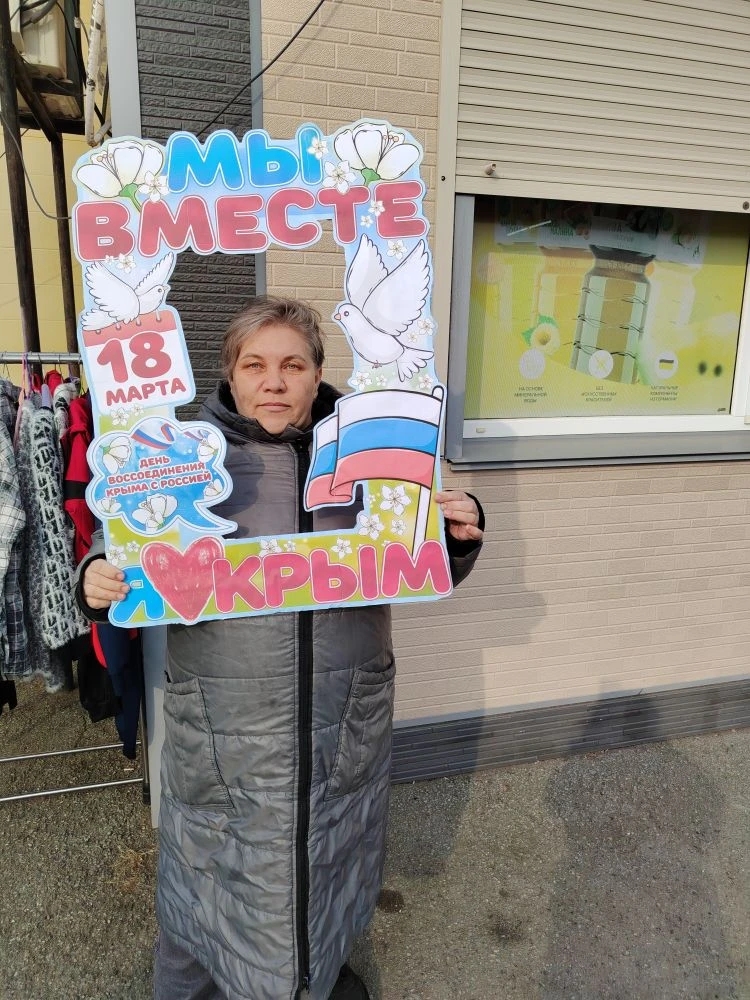 МЫ
ВМЕСТЕ
18
МАРТА
ДЕНЬ
ВОССОЕДИНЕНИЯ
КРЫМА С РОССИЕЙ
Я КРЫМ
МАЛИНА
НА ОСНОВЕ
МИНЕРАЛЬНОЙ
ВОДЫ
БЕЗ
ИСКУССТВЕННЫХ
КРАСИТЕЛЕЙ
НАТУРАЛЬНЫЕ
КОМПОНЕНТЫ
ИЗ ГЕРМАНИИ